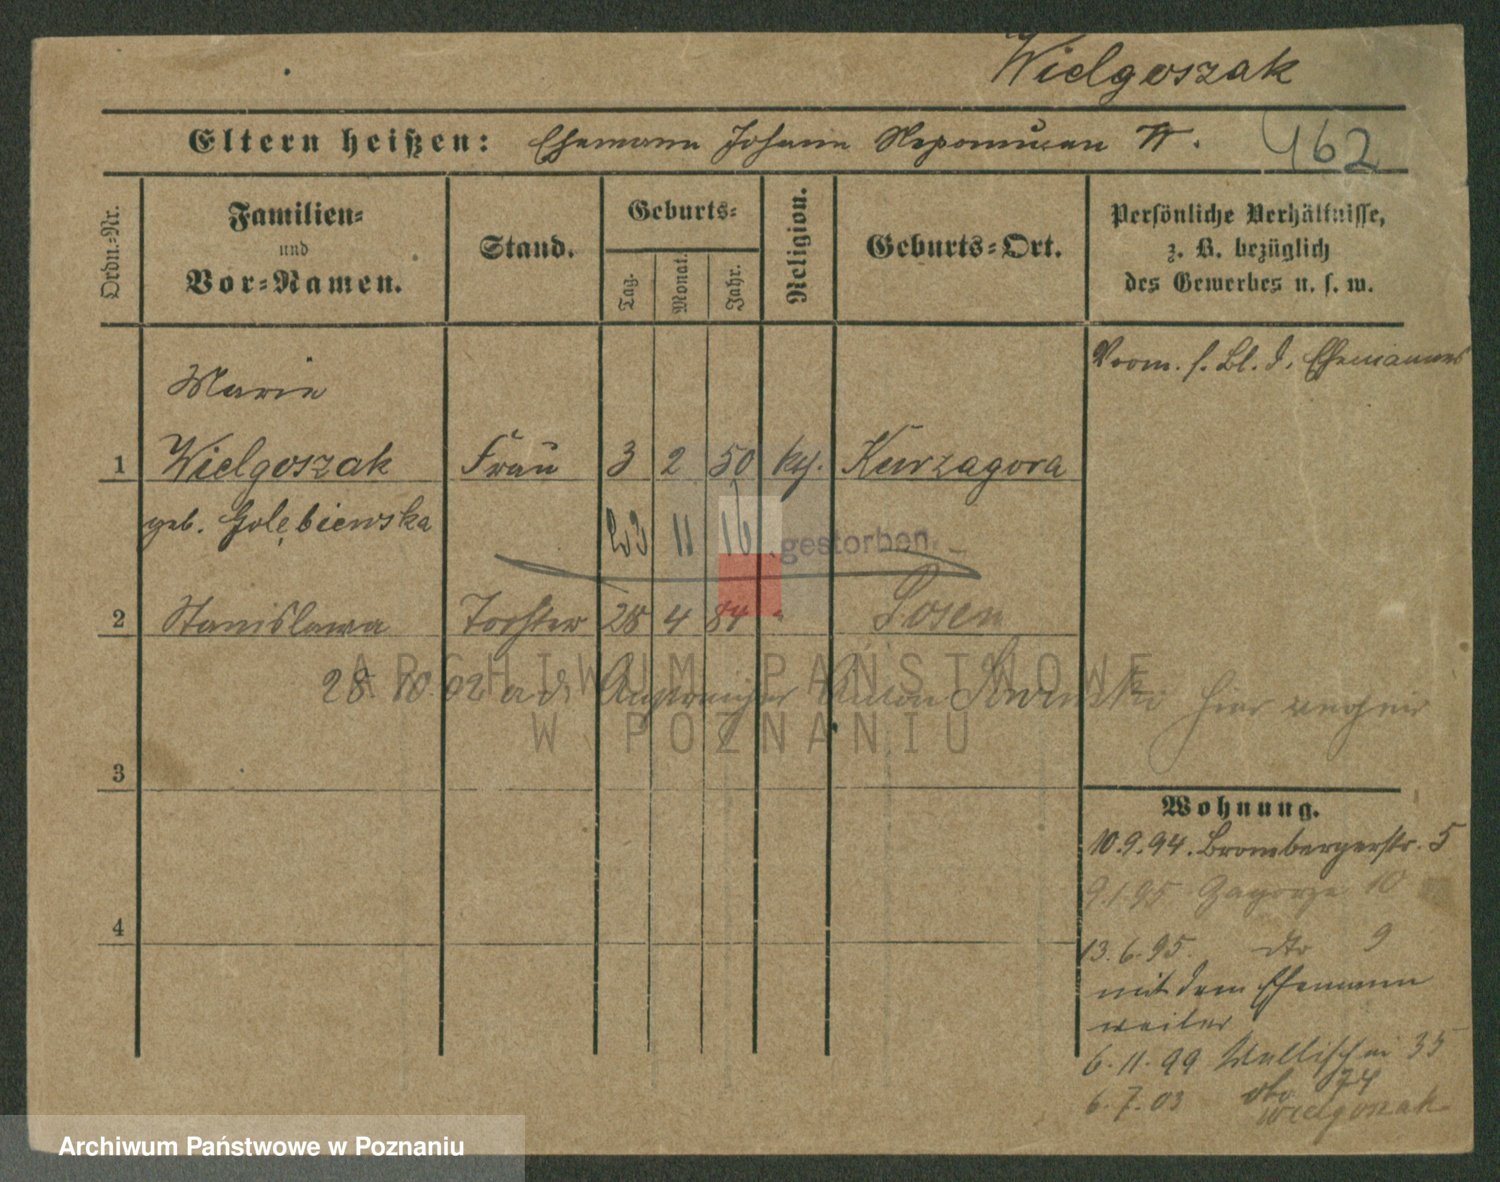 Wielgoszak
Eltern heißen: Ehemann Johann Nepomucen W.
462
Ordn.-Nr.
Familien-
und
Vor-Namen.
Stand.
Geburts-
Tag.
Monat.
Jahr.
Religion.
Geburts-Ort.
Persönliche Verhältnisse,
z. B. bezüglich
des Gewerbes u. s. w.
Vorm. s. Bl. d. Ehemannes
Marie
1 Wielgoszak Frau 3 2 50 kth. Kurzagora
geb. Golębiewska
23 11 16 gestorben.
2 Stanislawa Tochter 28 4 84 " Posen
28. 10. 02 a. d. Anton hier
ARCHIWUM PAŃSTWOWE
W POZNANIU
3
Wohnung.
10.9.94. Brombergerstr. 5
9.1.95 Zagorze 10
4
13.6.95. dto 9
mit dem Ehemann
weiter
6.11.99 Wallischei 35
6.7.03 dto 74
Wielgoszak
Archiwum Państwowe w Poznaniu